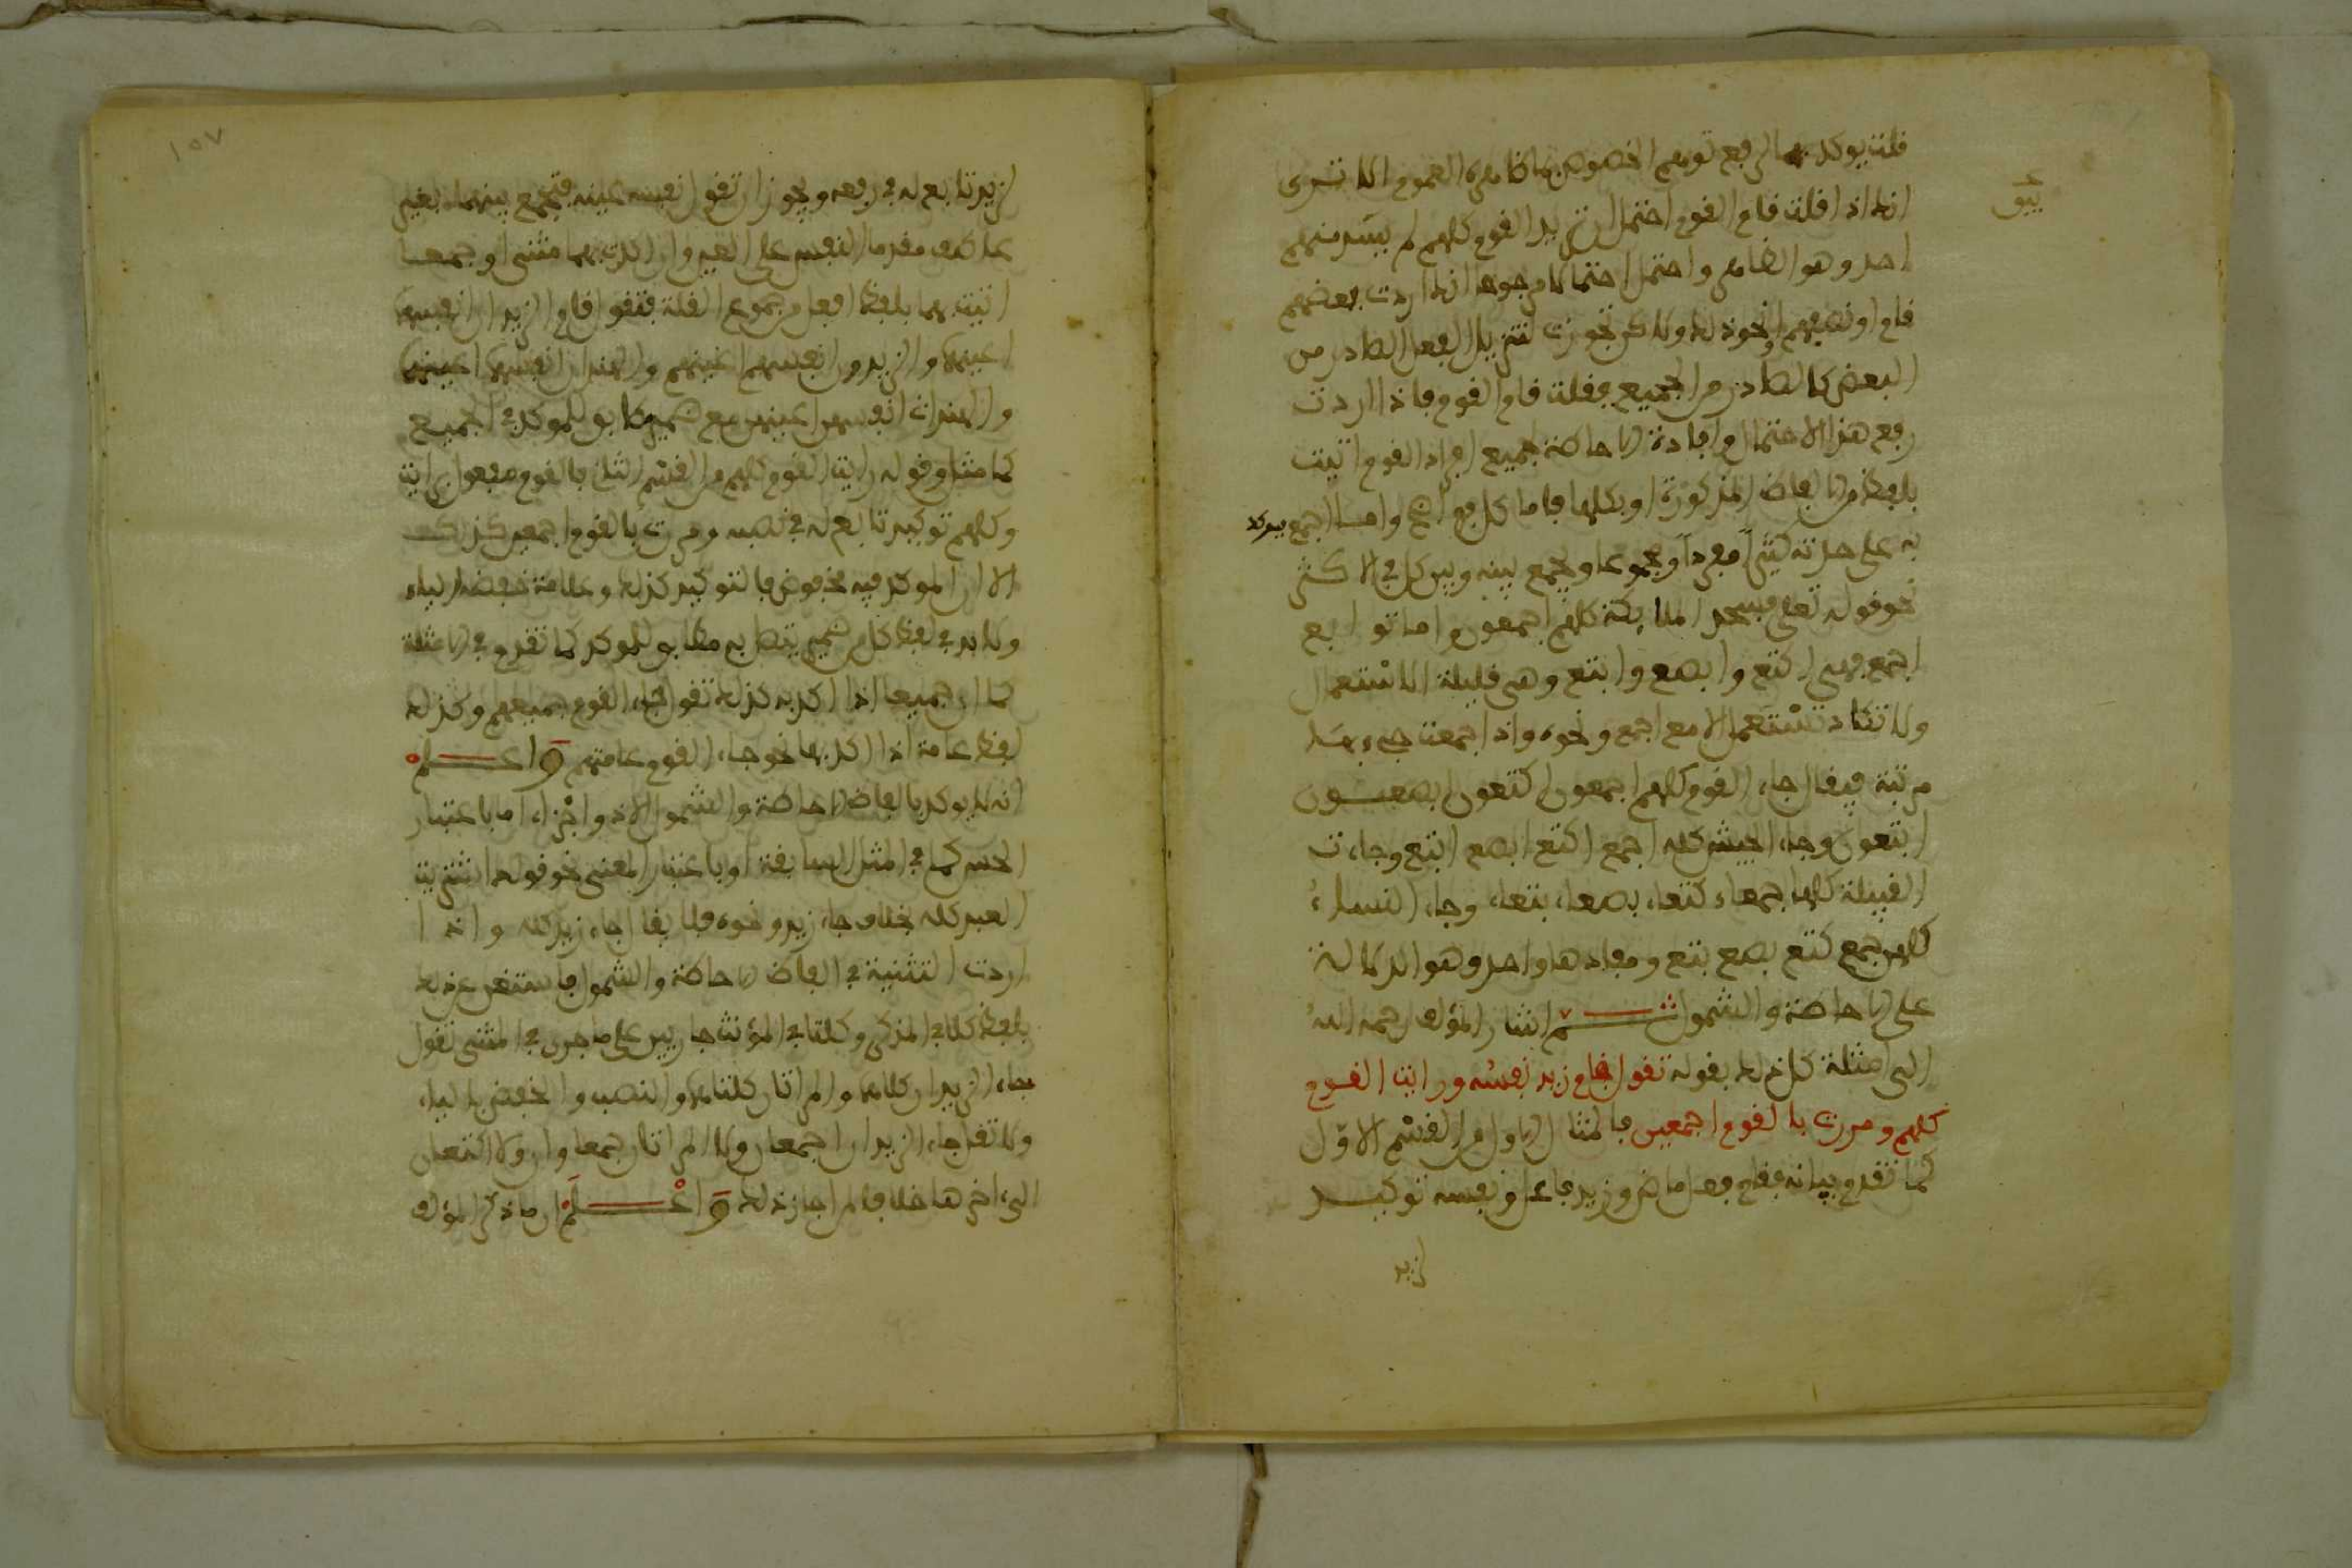 قلت يوكد بهما لرفع توهم الخصوص بما ظاهره العموم الا ترى
انك اذا قلت قام القوم احتمل ان تريد القوم كلهم لم يشذ منهم
احد وهو الظاهر واحتمل احتمالا مرجوحا انك اردت بعضهم
قام او نصفهم او نحو ذلك ولاكن تجوزت لتنزيل الفعل الصادر من
البعض كالصادر من الجميع فقلت قام القوم فاذا اردت
رفع هذا الاحتمال وافادة الاحاطة بجميع افراد القوم اتيت
بلفظ من الالفاظ المذكورة او بكلها فاما كل واما اجمع فيوكد
به على حدته كثيراً مفرداً ومجموعا ويجمع بينه وبين كل في الاكثر
نحو قوله تعلى فسجد الملائكة كلهم اجمعون واما توابع
اجمع فهي اكتع وابصع وابتع وهي قليلة الاستعمال
ولا تكاد تستعمل الا مع اجمع ونحوه واذا اجتمعت جيء بها
مرتبة فيقال جاء القوم كلهم اجمعون اكتعون ابصعون
ابتعون وجاء الجيش كله اجمع اكتع ابصع ابتع وجاءت
القبيلة كلها جمعاء كتعاء بصعاء بتعاء وجاء النساء
كلهن جمع كتع بصع بتع ومفادها واحد وهو الدلالة
على الاحاطة والشمول ثم اشار المؤلف رحمه الله
الى امثلة كل ذلك بقوله تقول قام زيد نفسه ورايت القوم
كلهم ومررت بالقوم اجمعين فالمثال الاول من القسم الاول
كما تقدم بيانه فقام فعل ماض وزيد فاعل ونفسه توكيد
لزيد
١٥٧
لزيد تابع له في رفعه ويجوز ان تقول نفسه عينه فتجمع بينهما بغير
عاطف مقدما النفس على العين وان اكدت بهما مثنى او جمعا
اتيت بهما بلفظ افعل من جموع القلة فتقول قام الزيدان انفسهما
اعينهما والزيدون انفسهم اعينهم والهندان انفسهما اعينهما
والهندات انفسهن اعينهن مع ضمير مطابق للموكد في الجميع
كما مثل وقوله رايت القوم كلهم من القسم الثاني فالقوم مفعول برايت
وكلهم توكيد تابع له في نصبه ومررت بالقوم اجمعين كذلك
الا ان الموكد فيه مخفوض فالتوكيد كذلك وعلامة خفضه الياء
ولا بد في لفظ كل من ضمير يتصل به مطابق للموكد كما تقدم في الامثلة
كما ان جميعا اذا اكد به كذلك تقول جاء القوم جميعهم وكذلك
لفظ عامة اذا اكد بها نحو جاء القوم عامتهم واعلم
انه لا يوكد بالفاظ الاحاطة والشمول الا ذو اجزاء اما باعتبار
الحس كما في المثل السابقة او باعتبار المعنى نحو قولك اشتريت
العبد كله بخلاف جاء زيد ونحوه فلا يقال جاء زيد كله واذا
اردت التثنية في الفاظ الاحاطة والشمول فاستغن عن ذلك
بلفظ كلا في المذكر وكلتا في المؤنث جاريين على ما جرى في المثنى تقول
جاء الزيدان كلاهما والمراتان كلتاهما والنصب والخفض بالياء
ولا تقل جاء الزيدان اجمعان ولا المراتان جمعاوان ولا اكتعان
الى اخرها خلافا لمن اجاز ذلك واعلم ان ما ذكر المؤلف